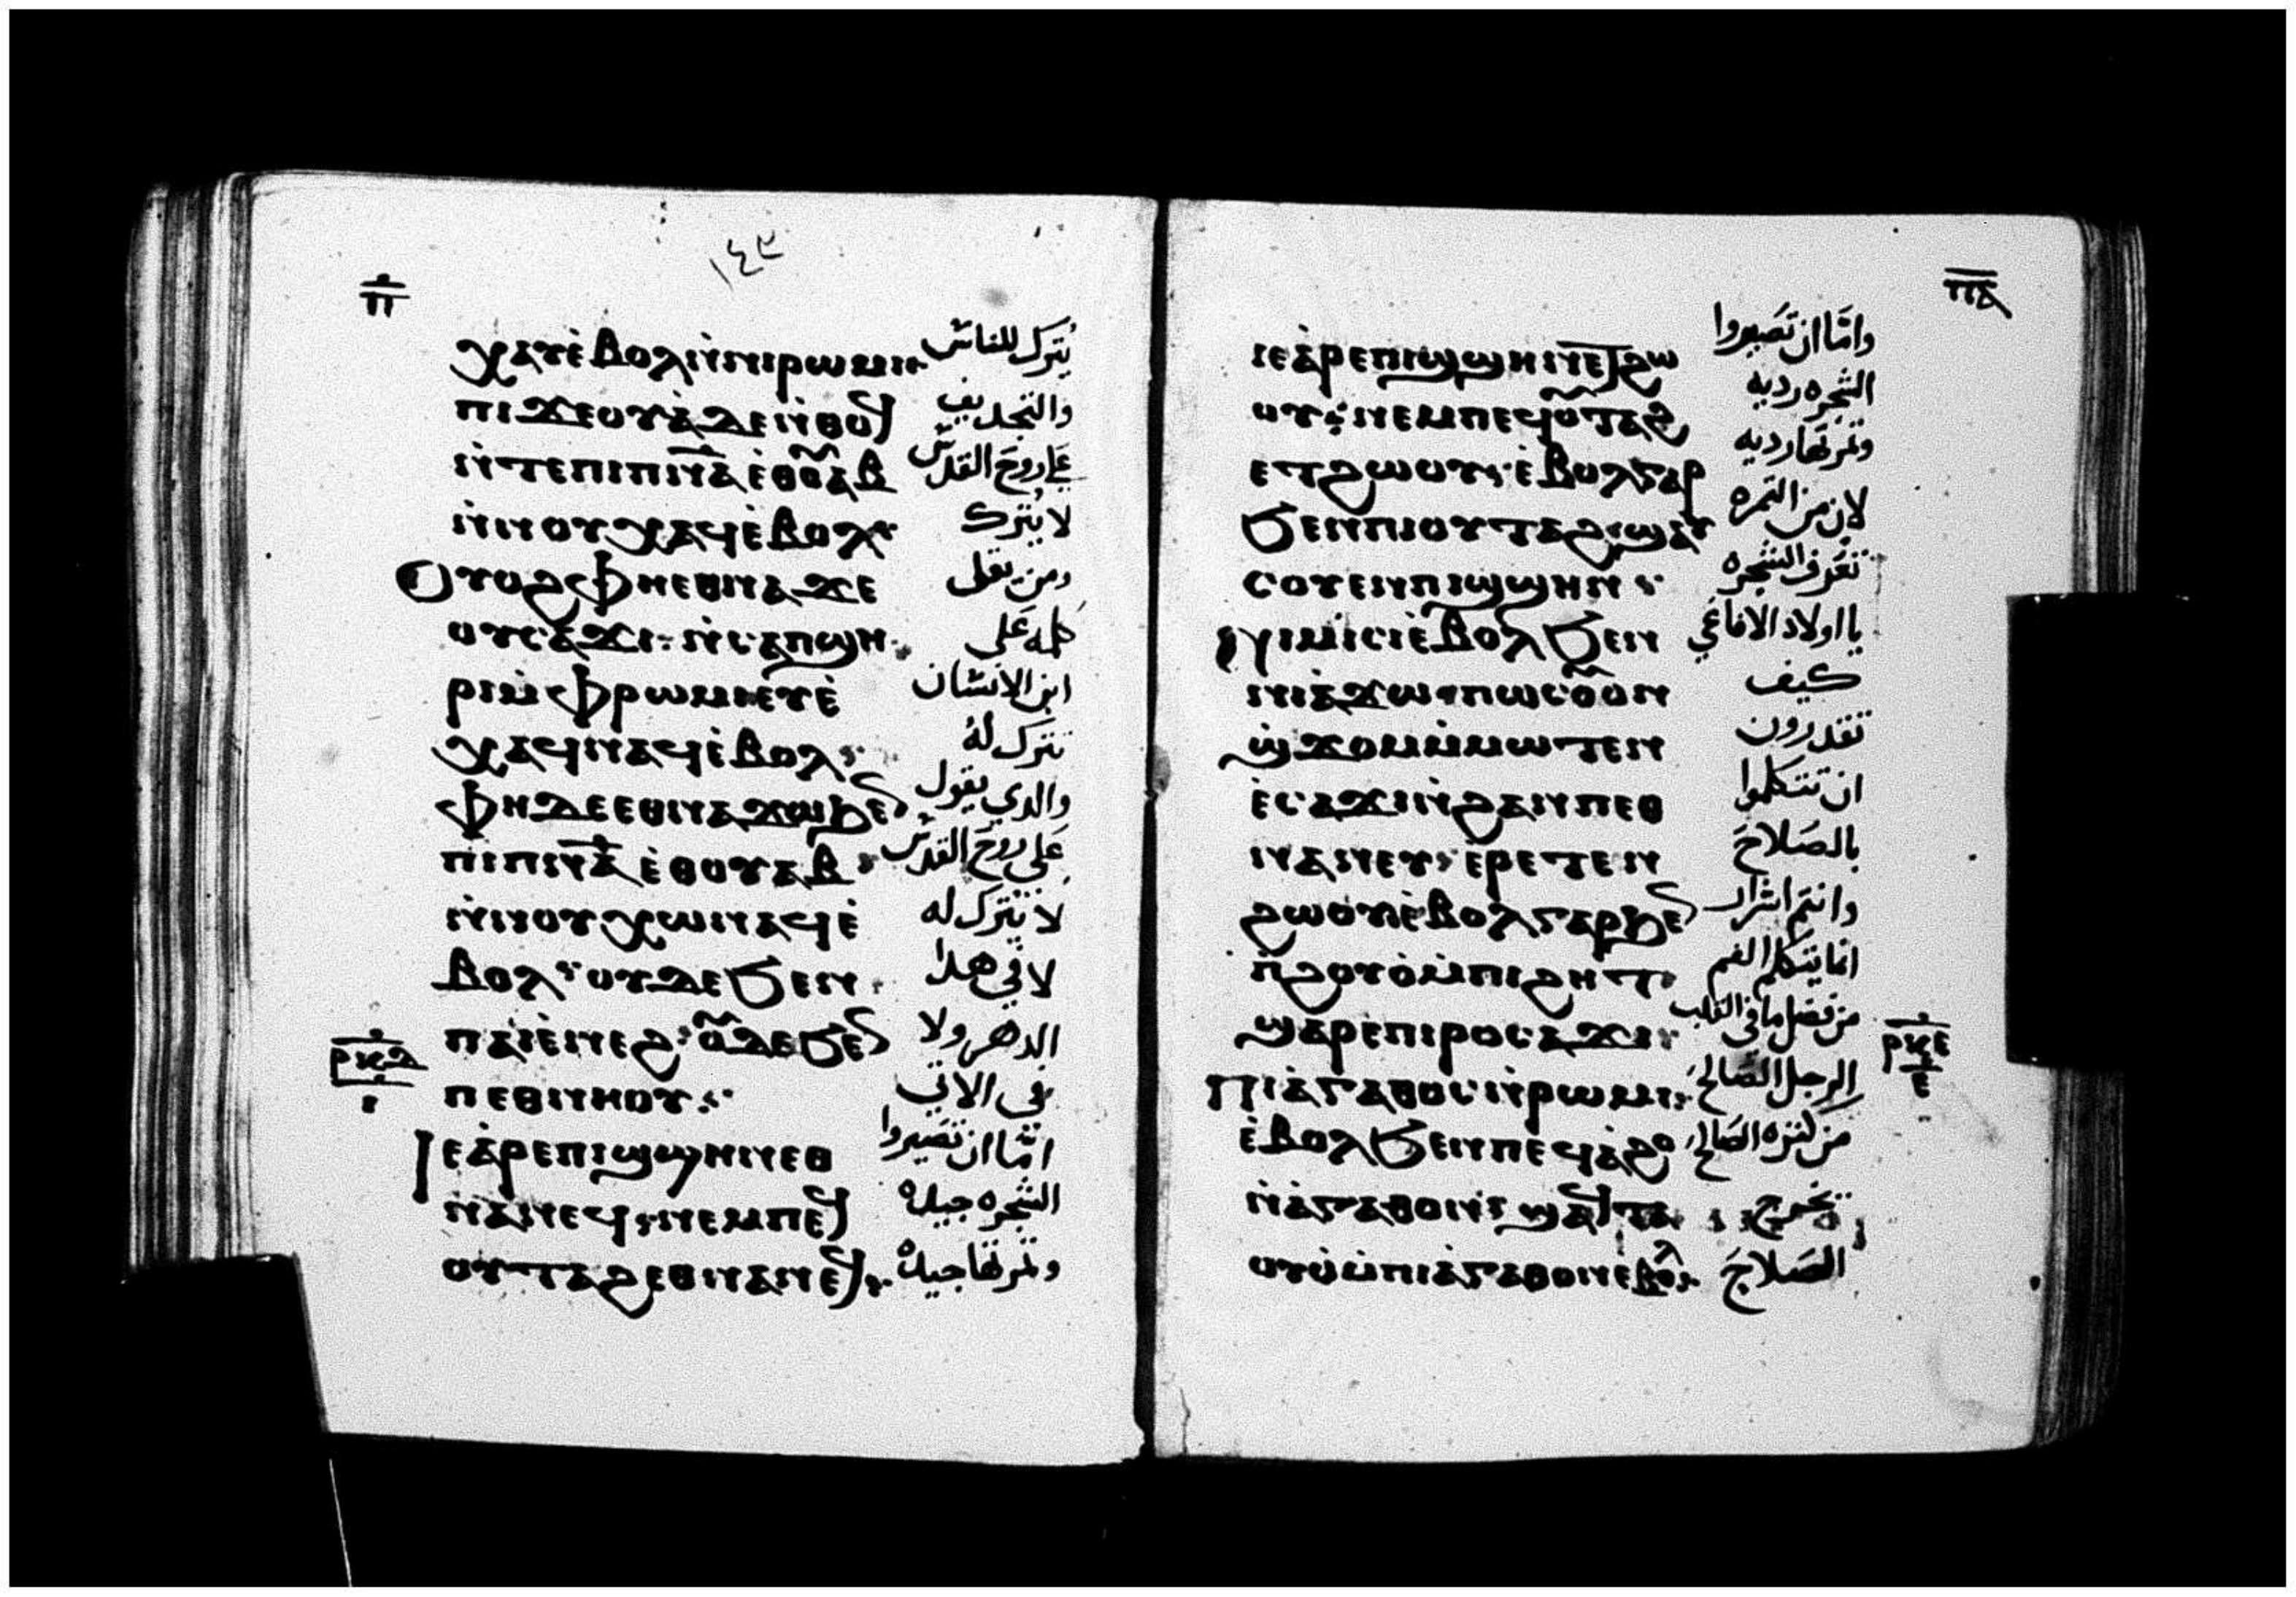 ١٤٣
ⲡ
ⲭⲁⲩⲉ̀ⲃⲟⲗⲛ̀ⲛⲓⲣⲱⲙⲓ يترك للناس
ⲡⲓϫⲉⲟⲩⲁ̀ⲇⲉⲛ̀ⲑⲟϥ والتجديف
ⲛ̀ⲧⲉⲡⲓⲡⲛ̅ⲁ̅ⲉ̀ⲑⲟ̅ⲁⲃ علي روح القدس
ⲛ̀ⲛⲟⲩⲭⲁϥⲉ̀ⲃⲟⲗ لا يترك
Ⲟⲩⲟϩⲫⲏⲉⲑⲛⲁϫⲉ ومن يقل
ⲟⲩⲥⲁϫⲓ ⲛ̀ⲥⲁⲡϣⲏ كلمه على
ⲣⲓⲙ̀ⲫⲣⲱⲙⲓⲉⲩⲉ̀ ابن الانسان
ⲭⲁϥⲛⲁϥⲉ̀ⲃⲟⲗ تترك له
ⲫⲏⲇⲉⲉⲑⲛⲁϫⲱⲃⲉ والدي يقول
ⲡⲓⲡⲛ̅ⲁ̅ⲉ̀ⲑⲟⲩⲁⲃ على روح القدس
ⲛ̀ⲛⲟⲩⲭⲱⲛⲁϥⲉ̀ لا تترك له
ⲃⲟⲗ ⲟⲩⲇⲉϧⲉⲛ لا في هدا
ⲡⲁⲓⲉ̀ⲛⲉϩ ⲟ̅ⲇⲉϧⲉ الدهر ولا
ⲣⲕⲇ
ⲓ
ⲡⲉⲑⲛⲏⲟⲩ في الاتي
Ⲓⲉⲁ̀ⲣⲉⲡⲓϣϣⲏⲛⲛⲉⲑ اما ان تصيروا
ⲛⲁⲛⲉϥ ⲛⲉⲙⲡⲉϥ الشجره جيده
ⲟⲩⲧⲁϩⲉⲑⲛⲁⲛⲉϥ وثمرتها جيده
ⲡⲁ
ⲓⲉⲁ̀ⲣⲉⲡⲓϣϣⲏⲛⲉⲧϩⲱ واما ان تصيروا
ⲟⲩ ⲛⲉⲙⲡⲉϥⲟ̅ⲧⲁϩ الشجره رديه
ⲉⲧϩⲱⲟⲩ ⲉ̀ⲃⲟⲗⲅⲁⲣ وثمرتها رديه
ϧⲉⲛⲡⲓⲟⲩⲧⲁϩ ϣⲁⲩ لان من الثمره
ⲥⲟⲩⲉⲛⲡⲓϣϣⲏⲛ تعرف الشجره
ⲛⲓⲙⲓⲥⲓⲉ̀ⲃⲟⲗϧⲉⲛ يا اولاد الافاعي
ⲛⲓⲁ̀ϫⲱ ⲡⲱⲥⲟ̅ⲟⲛ كيف
ϣϫⲟⲙⲙ̀ⲙⲱⲧⲉⲛ تقدرون
ⲉ̀ⲥⲁϫⲓⲛ̀ϩⲁⲛⲡⲉⲑ ان تتكلموا
ⲛⲁⲛⲉⲩ ⲉ̀ⲣⲉⲧⲉⲛ بالصلاح
ϩⲱⲟⲩⲉ̀ⲃⲟⲗⲅⲁⲣϧⲉ وانتم اشرار
ⲡ̀ϩⲟⲩⲟ̀ⲙ̀ⲡⲓϩⲏⲧ انما يتكلم الفم
ϣⲁⲣⲉⲡⲓⲣⲟⲥⲁϫⲓ من فضل ما في القلب
ⲣⲕⲉ
ⲉ
ⲡⲓⲁ̀ⲅⲁⲑⲟⲥⲛ̀ⲣⲱⲙⲓ الرجل الصالح
ⲉ̀ⲃⲟⲗϧⲉⲛⲡⲉϥⲁ̀ϩⲟ من كنزه الصالح
ⲛ̀ⲁ̀ⲅⲁⲑⲟⲛ ϣⲁϥⲧⲁ يخرج
ⲟⲩⲟ̀ⲙ̀ⲡⲓⲁ̀ⲅⲁⲑⲟⲛⲉⲃⲟⲗ الصلاح